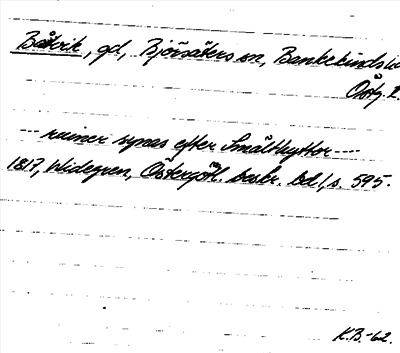 Båtvik, gd, Björsäters sn, Bankekinds hd
Östg. l.
--- ruiner synas efter Smälthyttor ----
1817, Widegren, Östergötl. beskr. bd 1, s. 595.
K.B.-62.